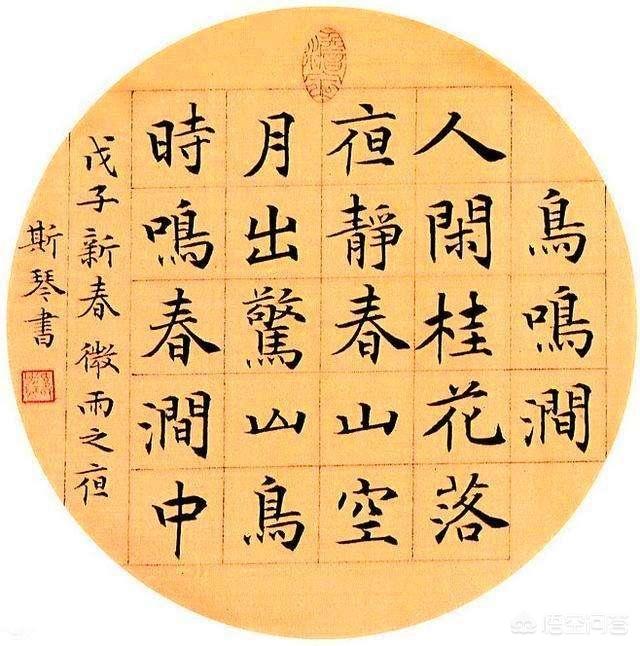 鳥鳴澗
人閑桂花落
夜靜春山空
月出驚山鳥
時鳴春澗中
戊子新春微雨之夜
斯琴書
悟空问答